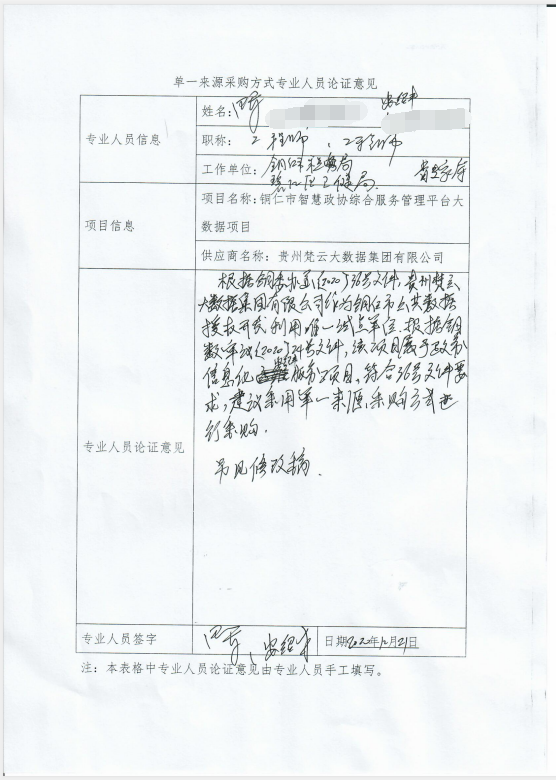 单一来源采购方式专业人员论证意见
专业人员信息
姓名：
职称：工程师、工程师
工作单位：
项目信息
项目名称：铜仁市智慧政协综合服务管理平台大
数据项目
供应商名称：贵州梵云大数据集团有限公司
专业人员论证意见
根据铜委办函(2020)36号文件，贵州梵云
大数据集团有限公司作为铜仁市公共数据
授权开发利用唯一试点单位。根据铜
数 (2020)24号文件，该项目属于政务
信息化 服务项目，符合36号文件要
求，建议采用单一来源采购方式进
行采购。
另见修改稿.
专业人员签字
日期2022年12月21日
注：本表格中专业人员论证意见由专业人员手工填写。